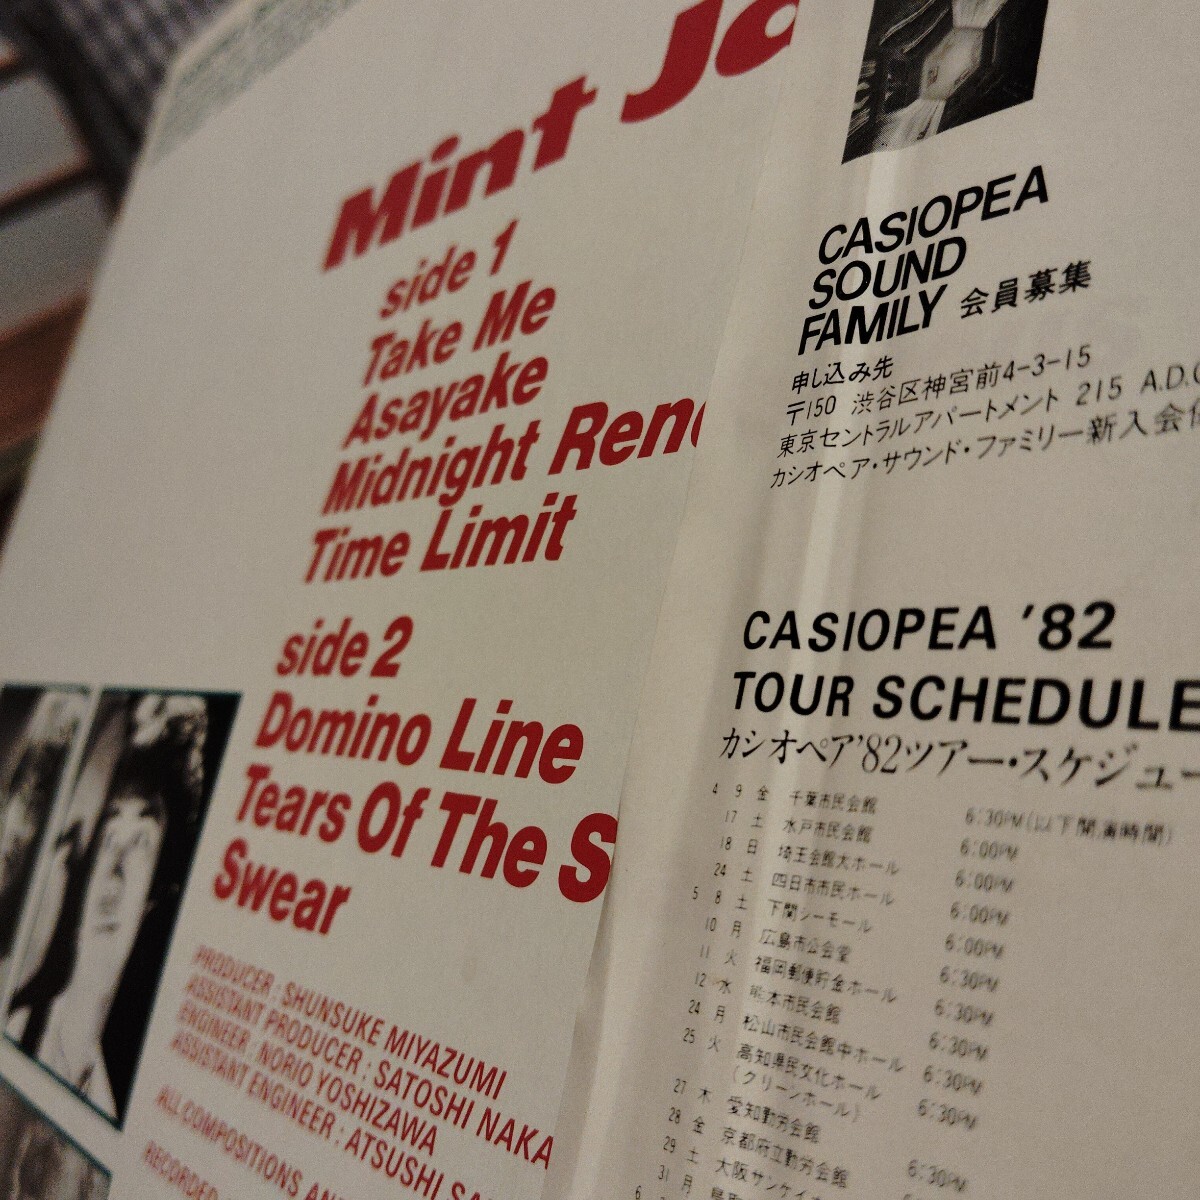 Mint Ja
side 1
Take Me
Asayake
Midnight Rend
Time Limit
side 2
Domino Line
Tears Of The S
Swear
PRODUCER : SHUNSUKE MIYAZUMI
ASSISTANT PRODUCER : SATOSHI NAKA
ENGINEER : NORIO YOSHIZAWA
ASSISTANT ENGINEER : ATSUSHI SA
ALL COMPOSITIONS AN
RECORDED
CASIOPEA
SOUND
FAMILY 会員募集
申し込み先
〒150 渋谷区神宮前4-3-15
東京セントラルアパートメント 215 A.D.C
カシオペア・サウンド・ファミリー新入会係
CASIOPEA '82
TOUR SCHEDULE
カシオペア'82ツアー・スケジュー
4 9 金 千葉市民会館 6:30PM(以下開演時間)
17 土 水戸市民会館 6:00PM
18 日 埼玉会館大ホール 6:00PM
24 土 四日市市民ホール 6:00PM
5 8 土 下関シーモール 6:00PM
10 月 広島市公会堂 6:30PM
11 火 福岡郵便貯金ホール 6:30PM
12 水 熊本市民会館 6:30PM
24 月 松山市民会館中ホール 6:30PM
25 火 高知県民文化ホール 6:30PM
(グリーンホール)
27 木 愛知勤労会館
28 金 京都府立勤労会館 6:30PM
29 土 大阪サンケイホ
31 月
6